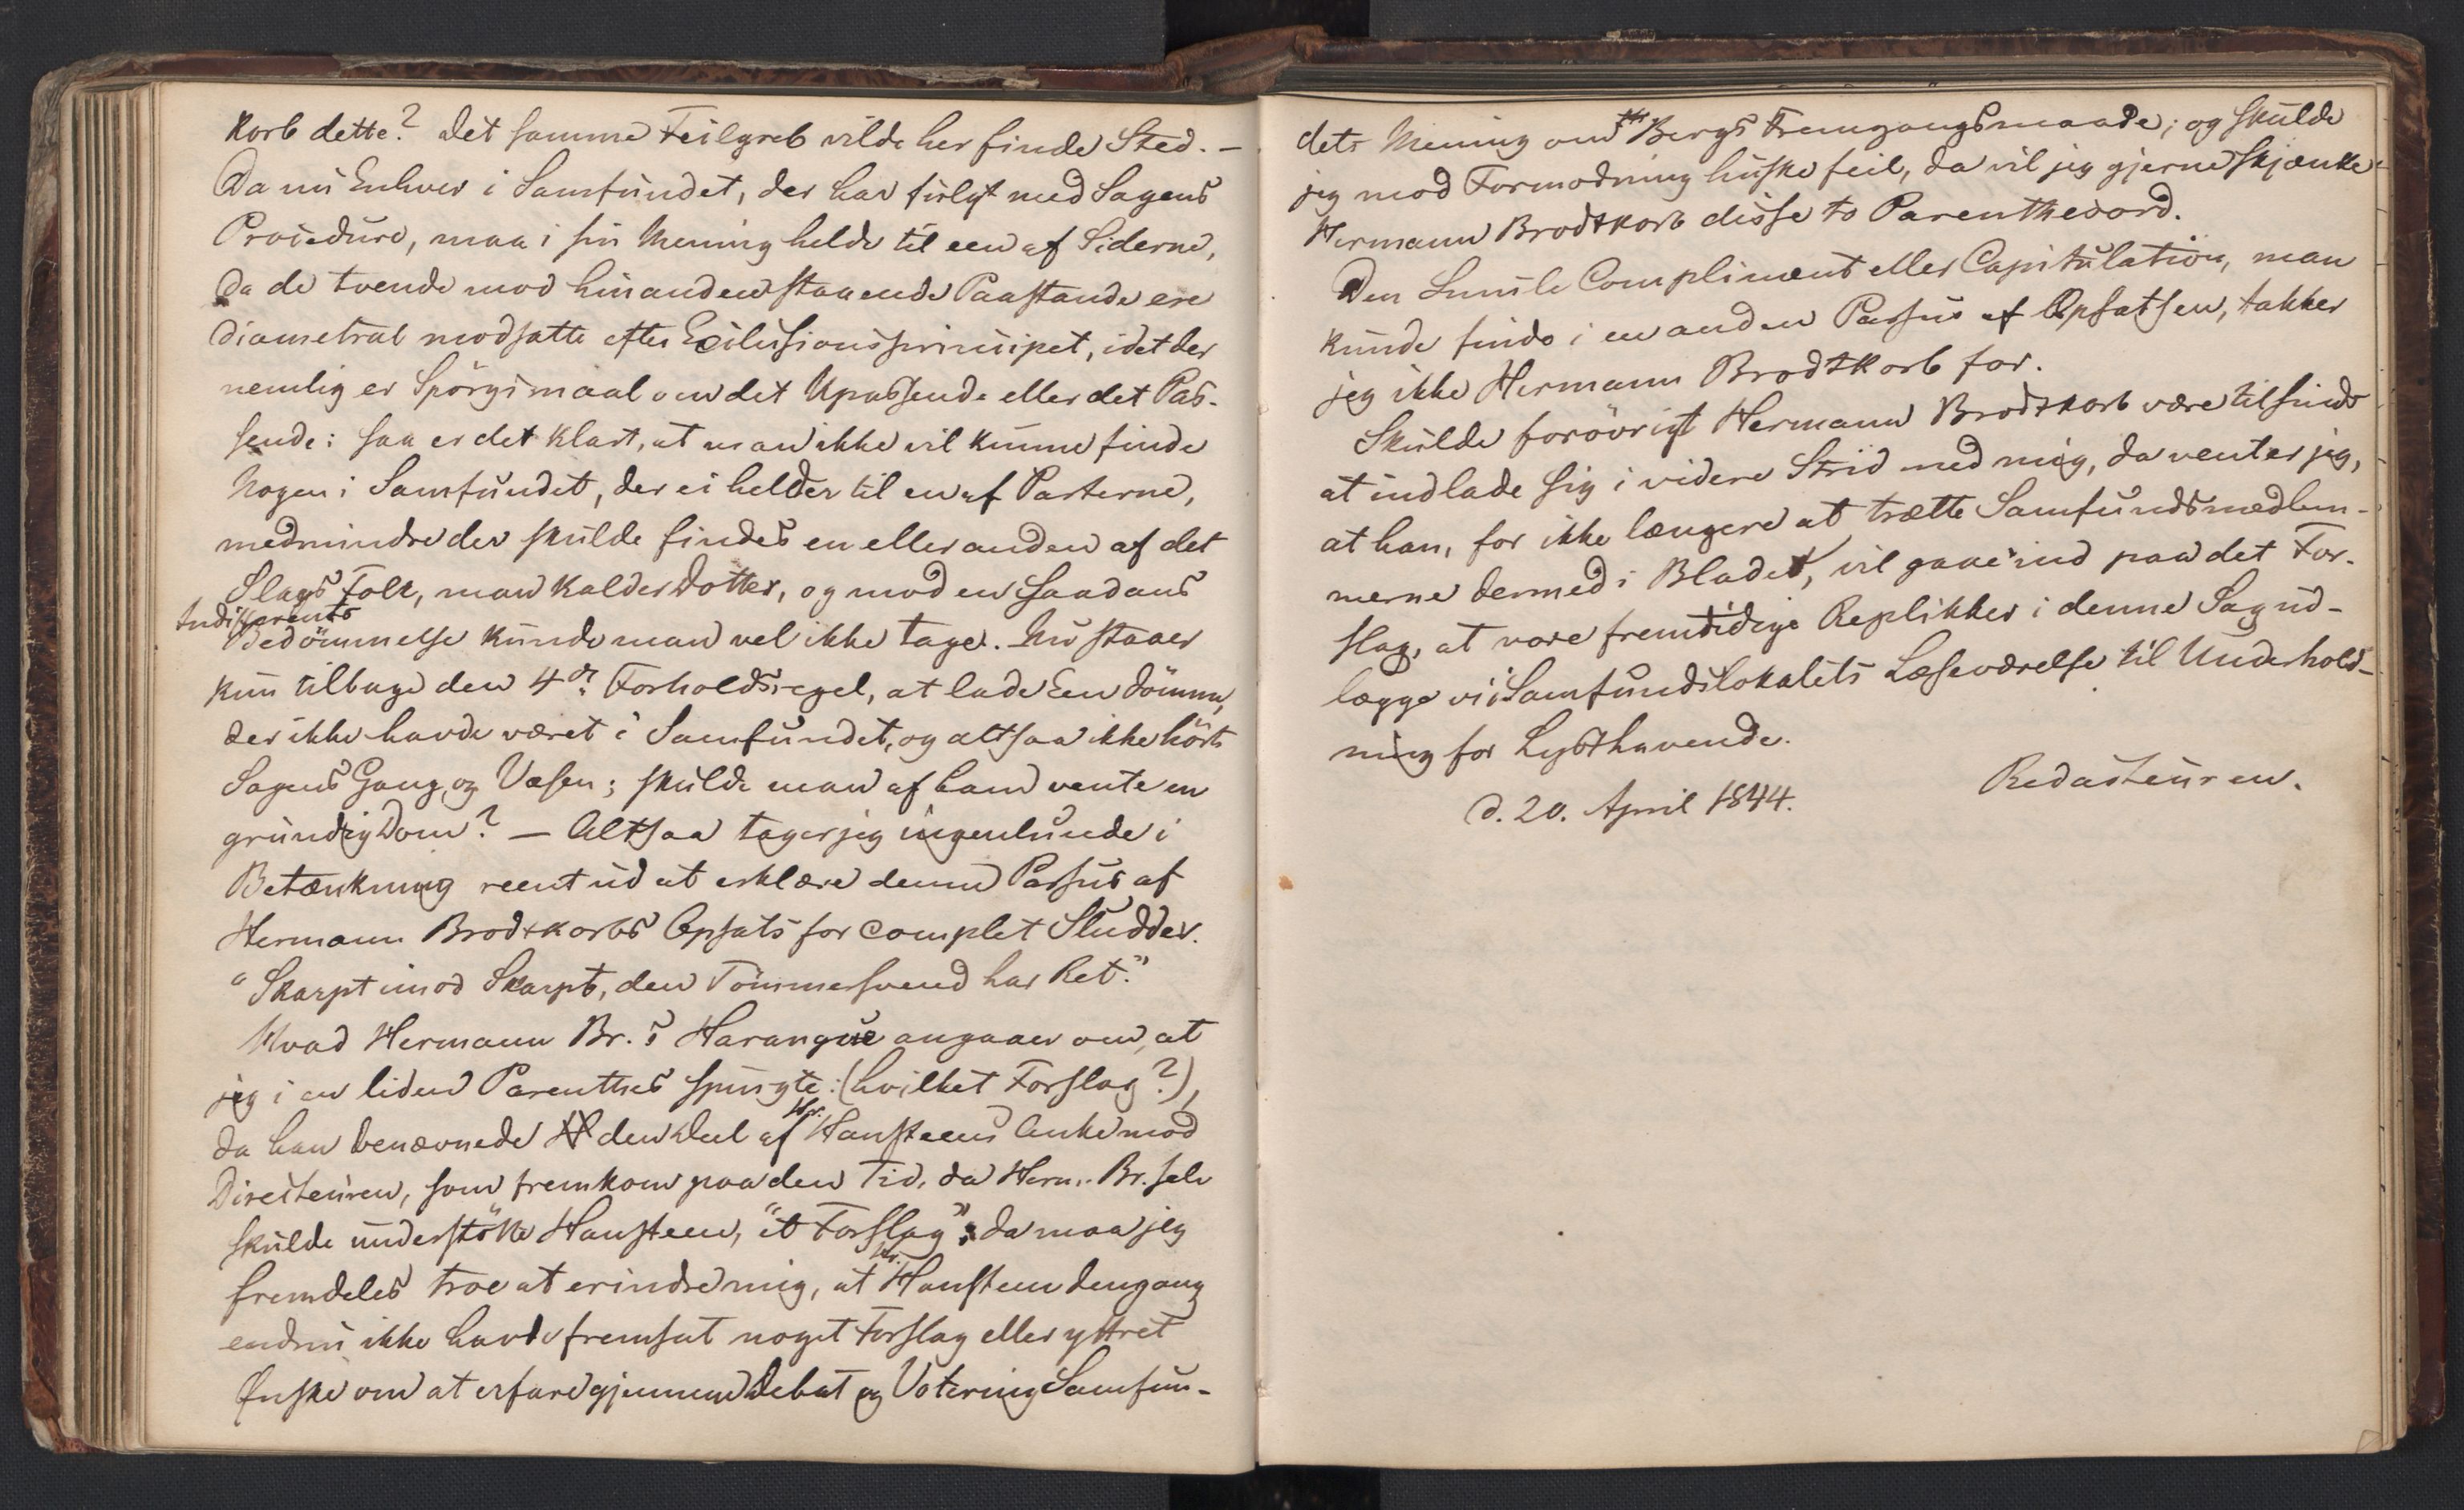 korb dette? Det samme Feilgreb vilde her finde Sted. –
Da nu Enhver i Samfundet, der har fulgt med Sagens
Procedure, maa i sin Mening helde til een af Siderne,
da de tvende mod hinanden staaende Paastande ere
diametral modsatte efter Exclusionsprincipet, idet der
nemlig er Spörgsmaal om det Upassende eller det Pas-
sende; saa er det klart, at man ikke vil kunne finde
Nogen i Samfundet, der ei helder til en af Parterne,
medmindre der skulde findes en eller anden af det
Slags Folk, man kalder Dotter, og mod en saadans
Indifferents
Bedömmelse kunde man vel ikke tage. Nu staaer
kun tilbage den 4de Forholdsregel, at lade Een dömme,
der ikke havde været i Samfundet, og altsaa ikke hört
Sagens Gang og Væsen; skulde man af ham vente en
grundig Dom? – Altsaa tager jeg ingenlunde i
Betænkning reent ud at erklære denne Passus af
Hermann Brodtkorbs Opsats for complet Sludder.
"Skarpt imod Skarpt, den Tömmersvend har Ret."
Hvad Hermann Br.s Harangue angaaer om, at
jeg i en liden Parenthes spurgte: (hvilket Forslag?),
da han benævnede den Deel af Hr. Hansteens Anke mod
Directeuren, som fremkom paa den Tid, da Herm. Br. selv
skulde understötte Hansteen, "et Forslag"; da maa jeg
fremdeles troe at erindre mig, at Hr. Hansteen dengang
endnu ikke havde fremsat noget Forslag eller yttret
Ønske om at erfare gjennem Debat og Votering Samfun-
dets Mening om Hr Bergs Fremgangsmaade; og skulde
jeg mod Formodning huske feil, da vil jeg gjerne skjænke
Hermann Brodtkorb disse to Parentheseord.
Den Smule Compliment eller Capitulation, man
kunde finde i en anden Passus af Opsatsen, takker
jeg ikke Hermann Brodtkorb for.
Skulde forövrigt Hermann Brodtkorb være tilsinds
at indlade sig i videre Strid med mig, da venter jeg,
at han, for ikke længere at trætte Samfundsmedlem-
merne dermed i Bladet, vil gaae ind paa det For-
slag, at vore fremtidige Replikker i denne Sag ud-
lægge vi i Samfundslokalets Læseværelse til Underhold-
ning for Lysthavende.
d. 20. April 1844.
Redacteuren.